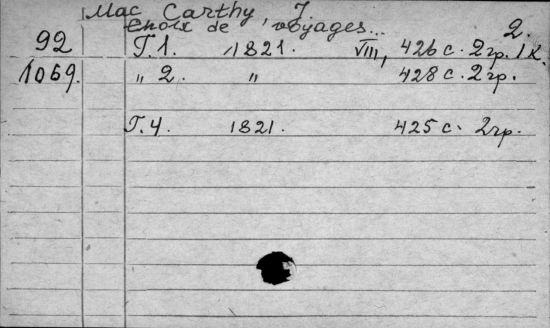 Mac Carthy J
Choix de voyages... 2.
92 Т.1. 1821. VIII, 426 с. 2 гр. 1 к.
1069. " 2. " 428 с. 2 гр.
Т.4. 1821. 425 с. 2 гр.